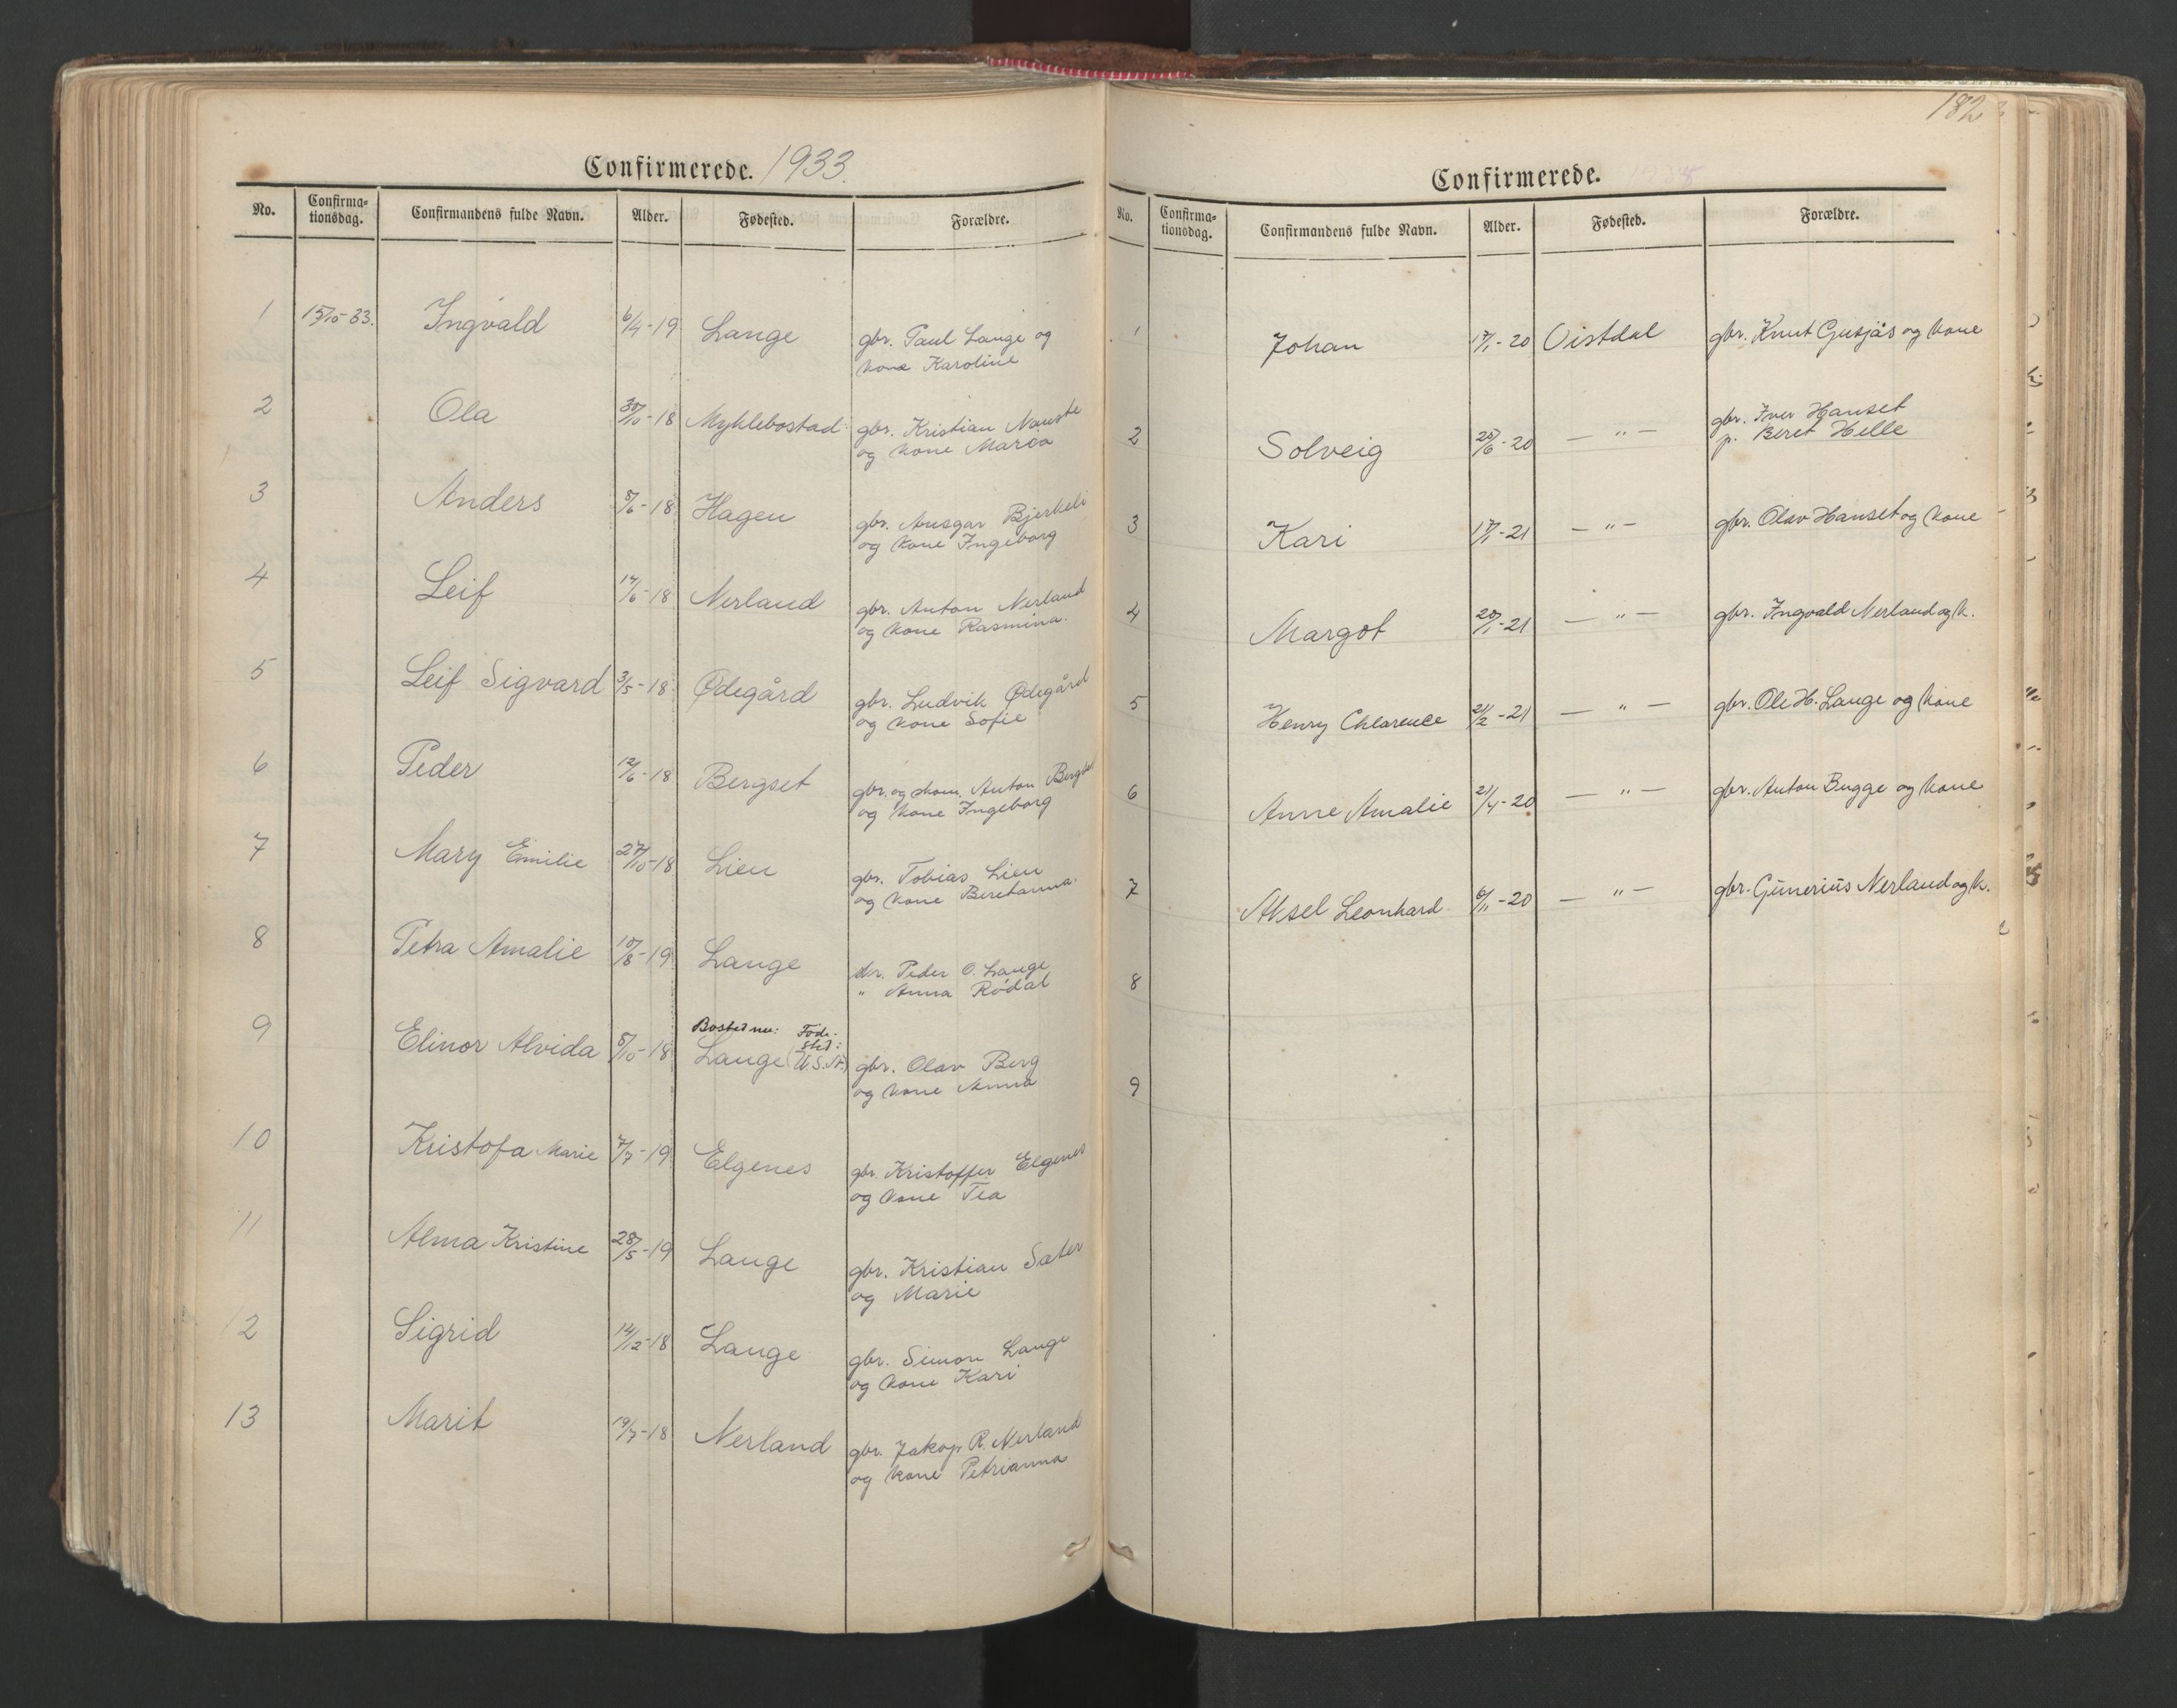 Confirmerede. 1933.
No. Confirma-tionsdag. Confirmandens fulde Navn. Alder. Fødested. Forældre.
1 15/10-33. Ingvald 6/4-19 Lange gbr. Paul Lange og
kone Karoline
2 Ola 30/10-18 Myklebostad gbr. Kristian Nauste
og kone Marea
3 Anders 8/6-18 Hagen gbr. Ansgar Bjerkeli
og kone Ingeborg
4 Leif 14/6-18 Nerland gbr. Anton Nerland
og kone Rasmina.
5 Leif Sigvard 3/5-18 Ødegård gbr. Ludvik Ødegård
og kone Sofie
6 Peder 12/6-18 Bergset gbr. og skom. Anton Bergset
og kone Ingeborg
7 Mary Emilie 27/10-18 Lien gbr. Tobias Lien
og kone Beretanna.
8 Petra Amalie 10/8-19 Lange Peder O. Lange
" Anna Rødal
Bosted nu: Føde-
sted:
9 Elinor Alvida 8/10-18 Lange (U.S.A.) gbr. Olav Berg
og kone Anna
10 Kristofa Marie 7/7-19 Elgenes gbr. Kristoffer Elgenes
og kone Tea
11 Alma Kristine 28/5-19 Lange gbr. Kristian Sæter
og Marie
12 Sigrid 14/12-18 Lange gbr. Simon Lange
og kone Kari
13 Marit 19/7-18 Nerland gbr. Jakop R. Nerland
og kone Petrianna
182
Confirmerede.
No. Confirma-tionsdag. Confirmandens fulde Navn. Alder. Fødested. Forældre.
1 Johan 17/1-20 Oistdal gbr. Knut Gusjås og kone
2 Solveig 25/6-20 — " — gbr. Iver Hanset
p. Beret Helle
3 Kari 17/1-21 — " — gbr. Olav Hanset og kone
4 Margot 20/1-21 — " — gbr. Ingvald Nerland og k.
5 Henry Chlarence 21/2-21 — " — gbr. Ole H. Lange og kone
6 Anne Amalie 21/4-20 — " — gbr. Anton Bugge og kone
7 Aksel Leonhard 6/11-20 — " — gbr. Gunerius Nerland og k.
8
9